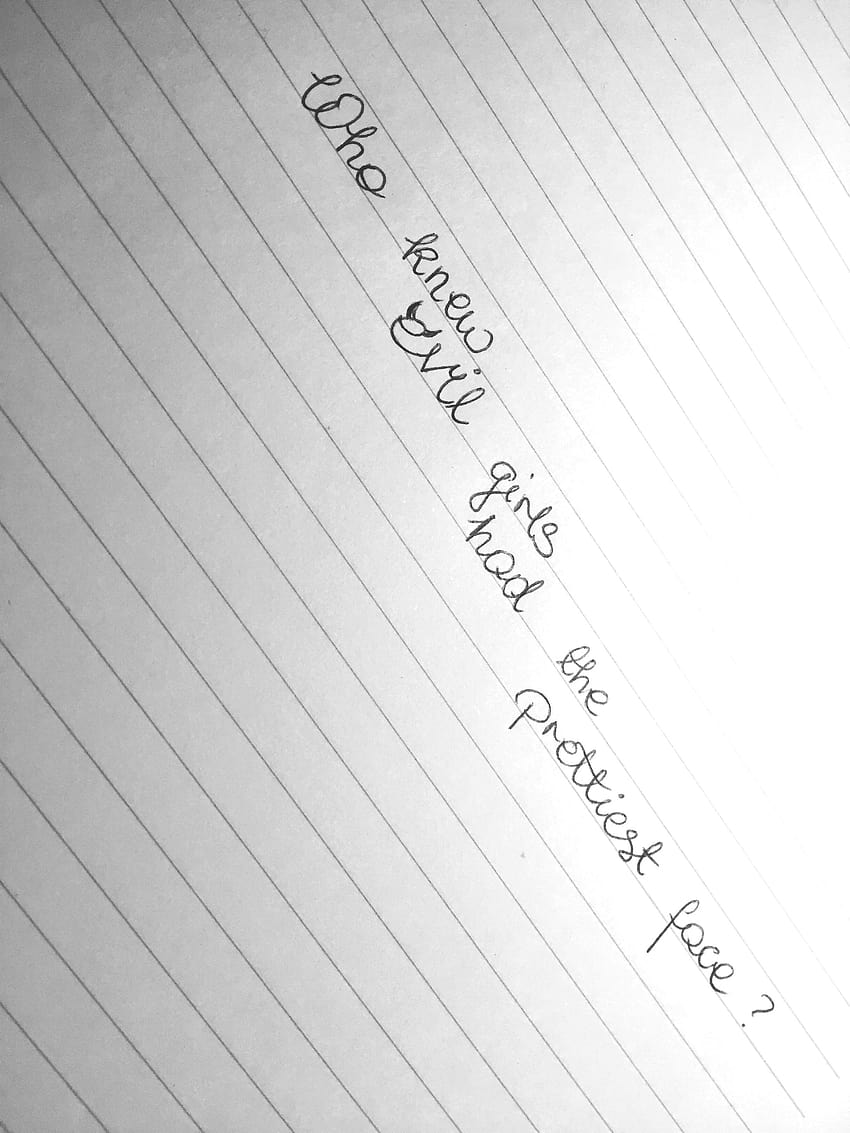 Who knew
Evil girls
had the
Prettiest face?